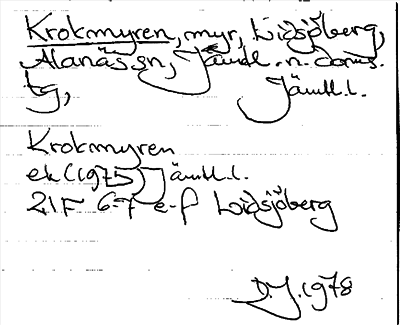 Krokmyren, myr, Lidsjöberg,
Alanäs sn, Jämtl. n. doms.
tg, Jämtl. l.
Krokmyren
ek (1975) Jämtl. l.
21F 6-7 e-f Lidsjöberg
D.J. 1978